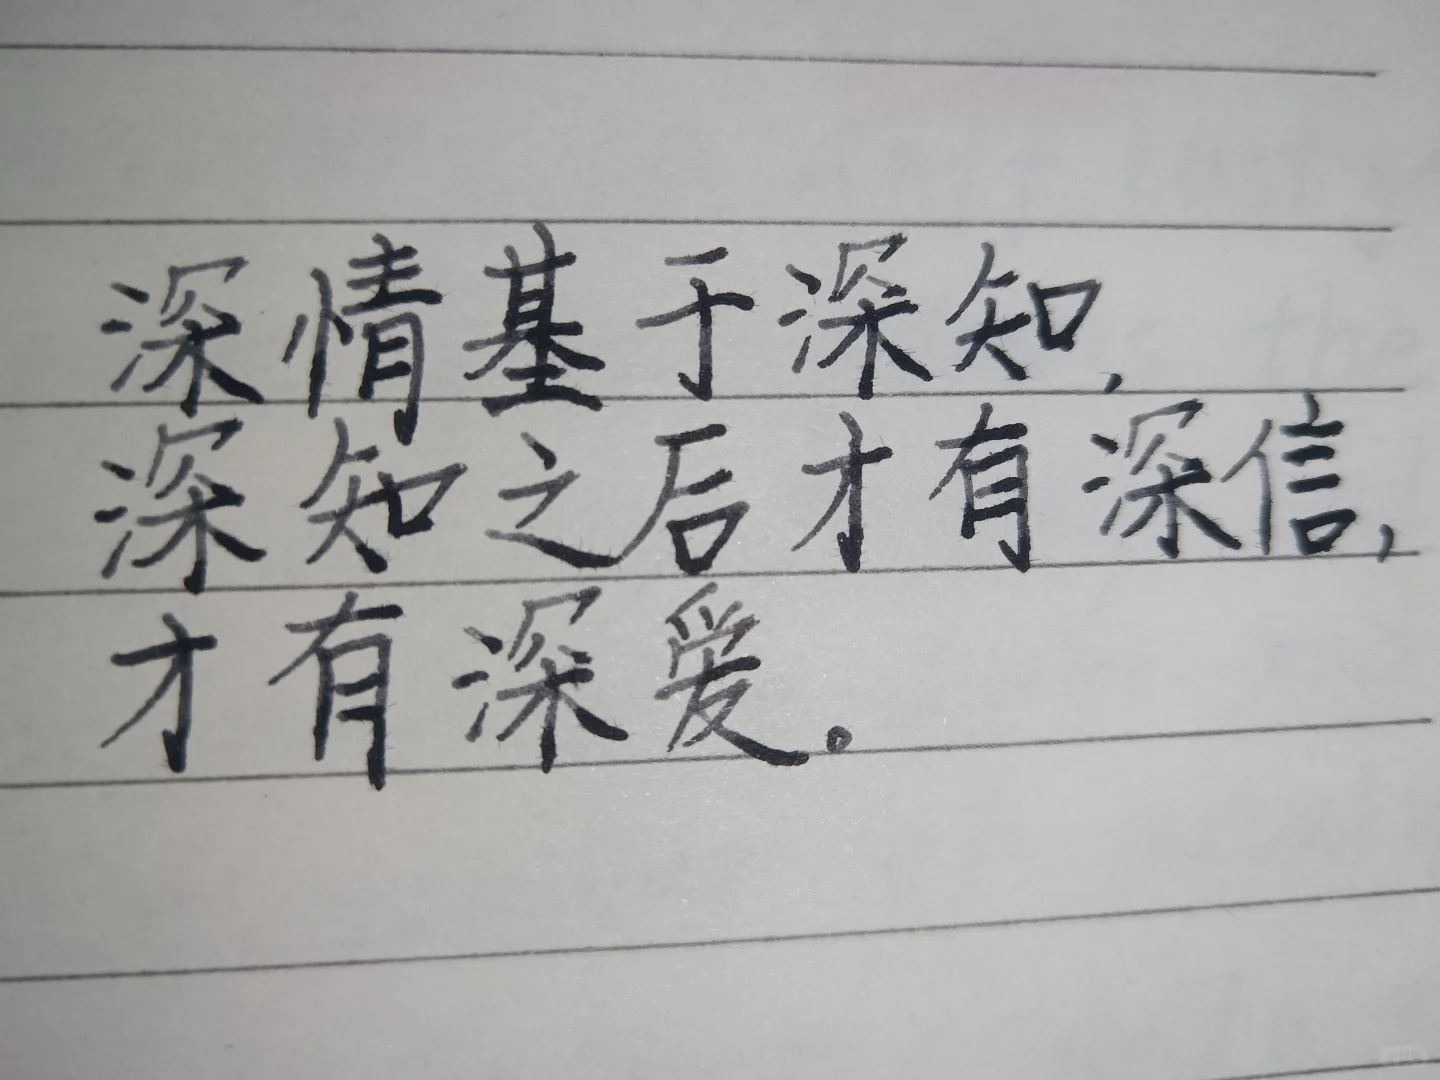 深情基于深知,
深知之后才有深信,
才有深爱。